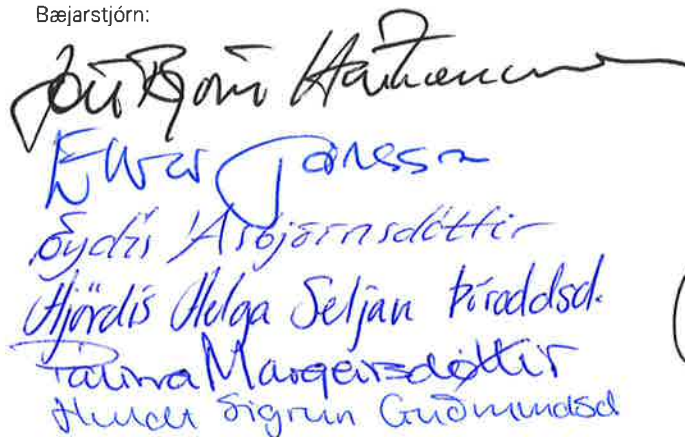 Bæjarstjórn:
Jón Björn Hákonarson
Elvar Jónsson
Eydís Ásbjörnsdóttir
Hjördís Helga Seljan Þóroddsd.
Pálína Margeirsdóttir
Hulda Sigrún Guðmundsd